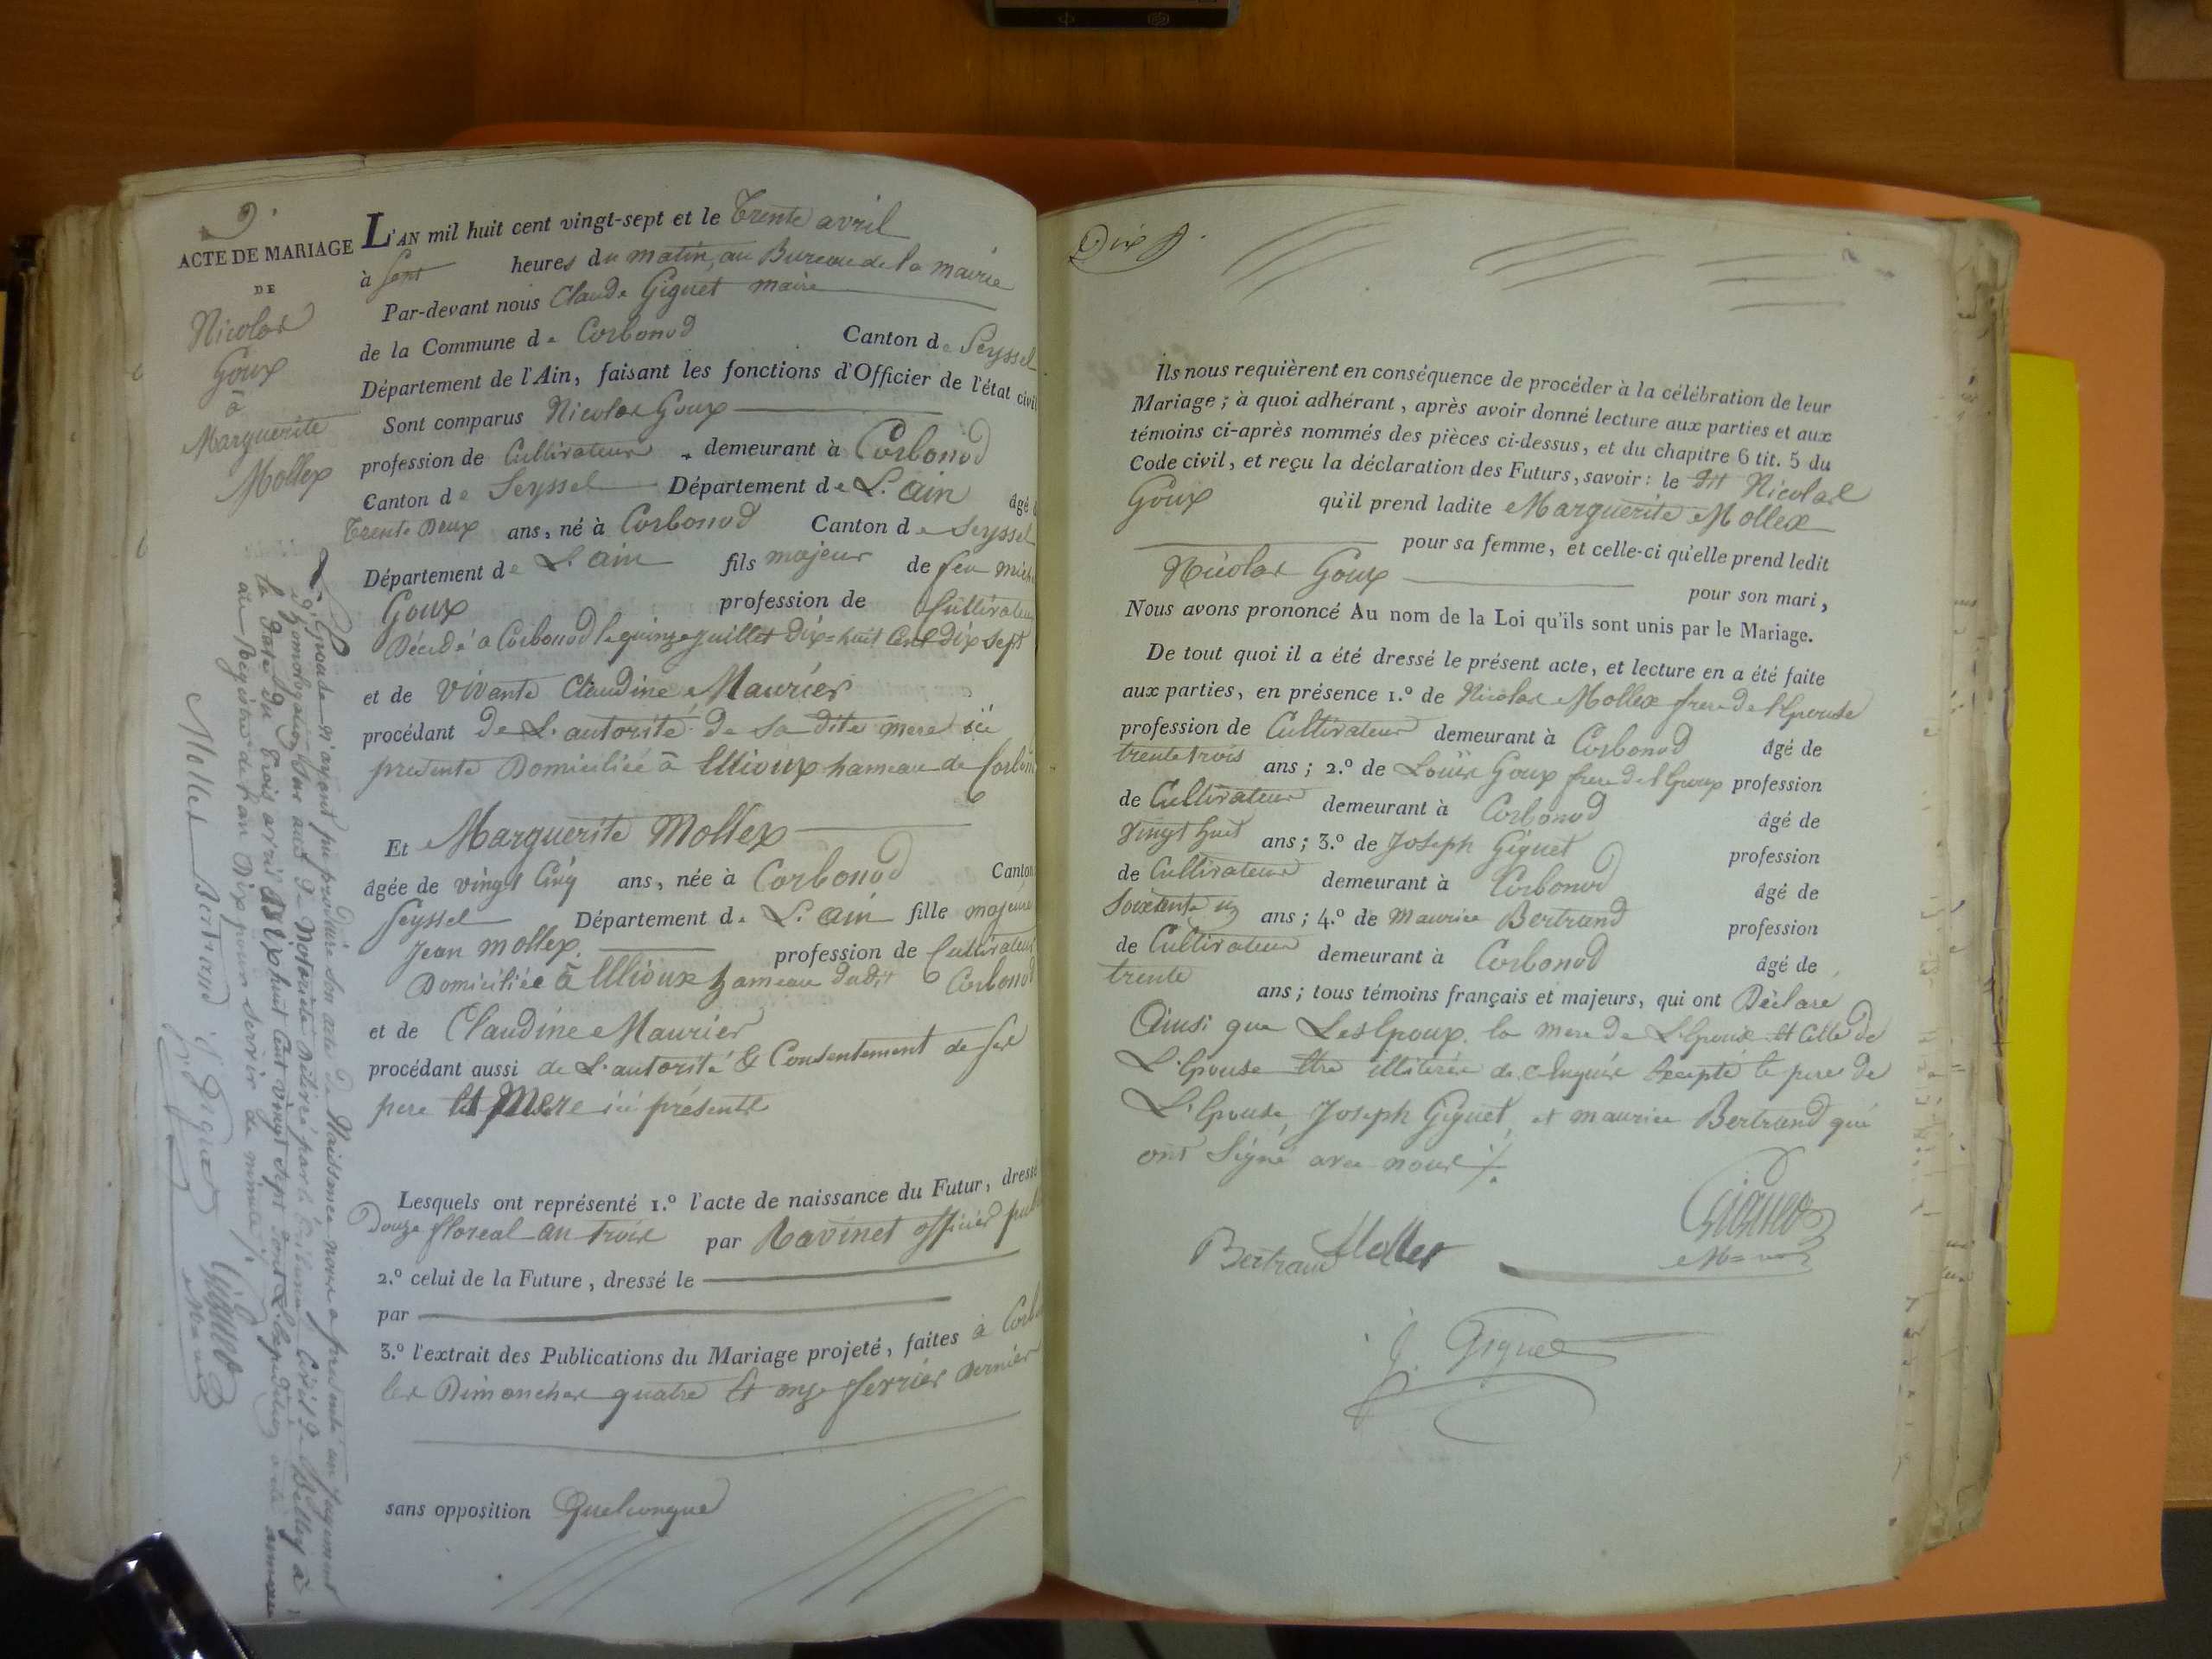 9.
ACTE DE MARIAGE
DE
Nicolas
Goux
à
Marguerite
Mollex
L'AN mil huit cent vingt-sept et le Trente avril
à Sept heures du matin, au Bureau de la mairie
Par-devant nous Claude Giguet maire
de la Commune de Corbonod Canton de Seyssel
Département de l'Ain, faisant les fonctions d'Officier de l'état civil
Sont comparus Nicolas Goux
profession de Cultivateur demeurant à Corbonod
Canton de Seyssel Département de L'ain âgé d
Trente Deux ans, né à Corbonod Canton de Seyssel
Département de L'ain fils majeur de feu
Goux profession de Cultivateur
Décédé a Corbonod le quinze juillet Dix=huit Cent Dix Sept
et de vivante Claudine Maurier
procédant de L'autorité de sa dite mere ici
presente Domiciliée à Ullioux hameau de
Et Marguerite Mollex
âgée de vingt Cinq ans, née à Corbonod Canton
Seyssel Département de L'ain fille majeure
Jean Mollex profession de Cultivateur
Domiciliée à Ullioux hameau dudit Corbonod
et de Claudine Maurier
procédant aussi de L'autorité & Consentement de ses
pere et Mere ici présents
Lesquels ont représenté 1.º l'acte de naissance du Futur, dressé
Douze floreal an trois par Ravinet officier
2.º celui de la Future, dressé le
par
3.º l'extrait des Publications du Mariage projeté, faites à
les Dimanches quatre et onze fevrier dernier
sans opposition Quelconque
L'Epouse n'ayant pu produire son acte de Naissance nous a présenté un jugement
d'homologation Sur acte de Notoriété Délivré par le tribunal Civil de Belley à
la date du trois avril Dix huit Cent vingt Sept dont L'expédition a été annexée
au Registre de l'an Dix pour servir de minute
Mollex Bertrand J Giguet Giguet
Maire
Dix
Ils nous requièrent en conséquence de procéder à la célébration de leur
Mariage; à quoi adhérant, après avoir donné lecture aux parties et aux
témoins ci-après nommés des pièces ci-dessus, et du chapitre 6 tit. 5 du
Code civil, et reçu la déclaration des Futurs, savoir: le dit Nicolas
Goux qu'il prend ladite Marguerite Mollex
pour sa femme, et celle-ci qu'elle prend ledit
Nicolas Goux pour son mari,
Nous avons prononcé Au nom de la Loi qu'ils sont unis par le Mariage.
De tout quoi il a été dressé le présent acte, et lecture en a été faite
aux parties, en présence 1.º de Nicolas Mollex frere de l'Epouse
profession de Cultivateur demeurant à Corbonod âgé de
trente trois ans; 2.º de Louis Goux frere de l'Epoux profession
de Cultivateur demeurant à Corbonod âgé de
vingt huit ans; 3.º de Joseph Giguet profession
de Cultivateur demeurant à Corbonod âgé de
Soixante un ans; 4.º de Maurice Bertrand profession
de Cultivateur demeurant à Corbonod âgé de
trente ans; tous témoins français et majeurs, qui ont Déclaré
Ainsi que Les Epoux la mere de L'Epoux et Celle de
L'Epouse Etre illitérés de Enquis Excepté le pere de
L'Epouse, Joseph Giguet, et maurice Bertrand qui
ont Signé avec nous
Bertrand Mollex Giguet
Maire
J. Giguet